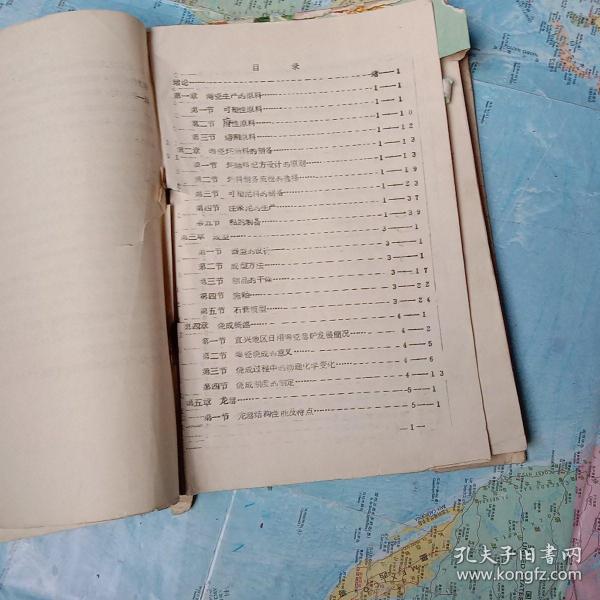 目 录
绪论……绪—1
第一章 陶瓷生产的原料……1—1
第一节 可塑性原料……1—1
第二节 瘠性原料……1—10
第三节 熔剂原料……1—12
第二章 陶瓷坯釉料的制备……1—13
第一节 坯釉料配方设计的原则……1—13
第二节 坯料制备流程的选择……1—19
第三节 可塑泥料的制备……1—23
第四节 注浆泥的生产……1—37
第五节 釉的制备……1—39
第三章 成型……3—1
第一节 器型的设计……3—1
第二节 成型方法……3—1
第三节 制品的干燥……3—17
第四节 施釉……3—22
第五节 石膏模型……3—24
第四章 烧成概述……4—1
第一节 宜兴地区日用陶瓷窑炉发展概况……4—2
第二节 陶瓷烧成的意义……4—5
第三节 烧成过程中的物理化学变化……4—6
第四节 烧成制度的制定……4—13
第五章 龙窑……5—1
第一节 龙窑结构性能及特点……5—1
—1—
孔夫子旧书网
www.kongfz.com